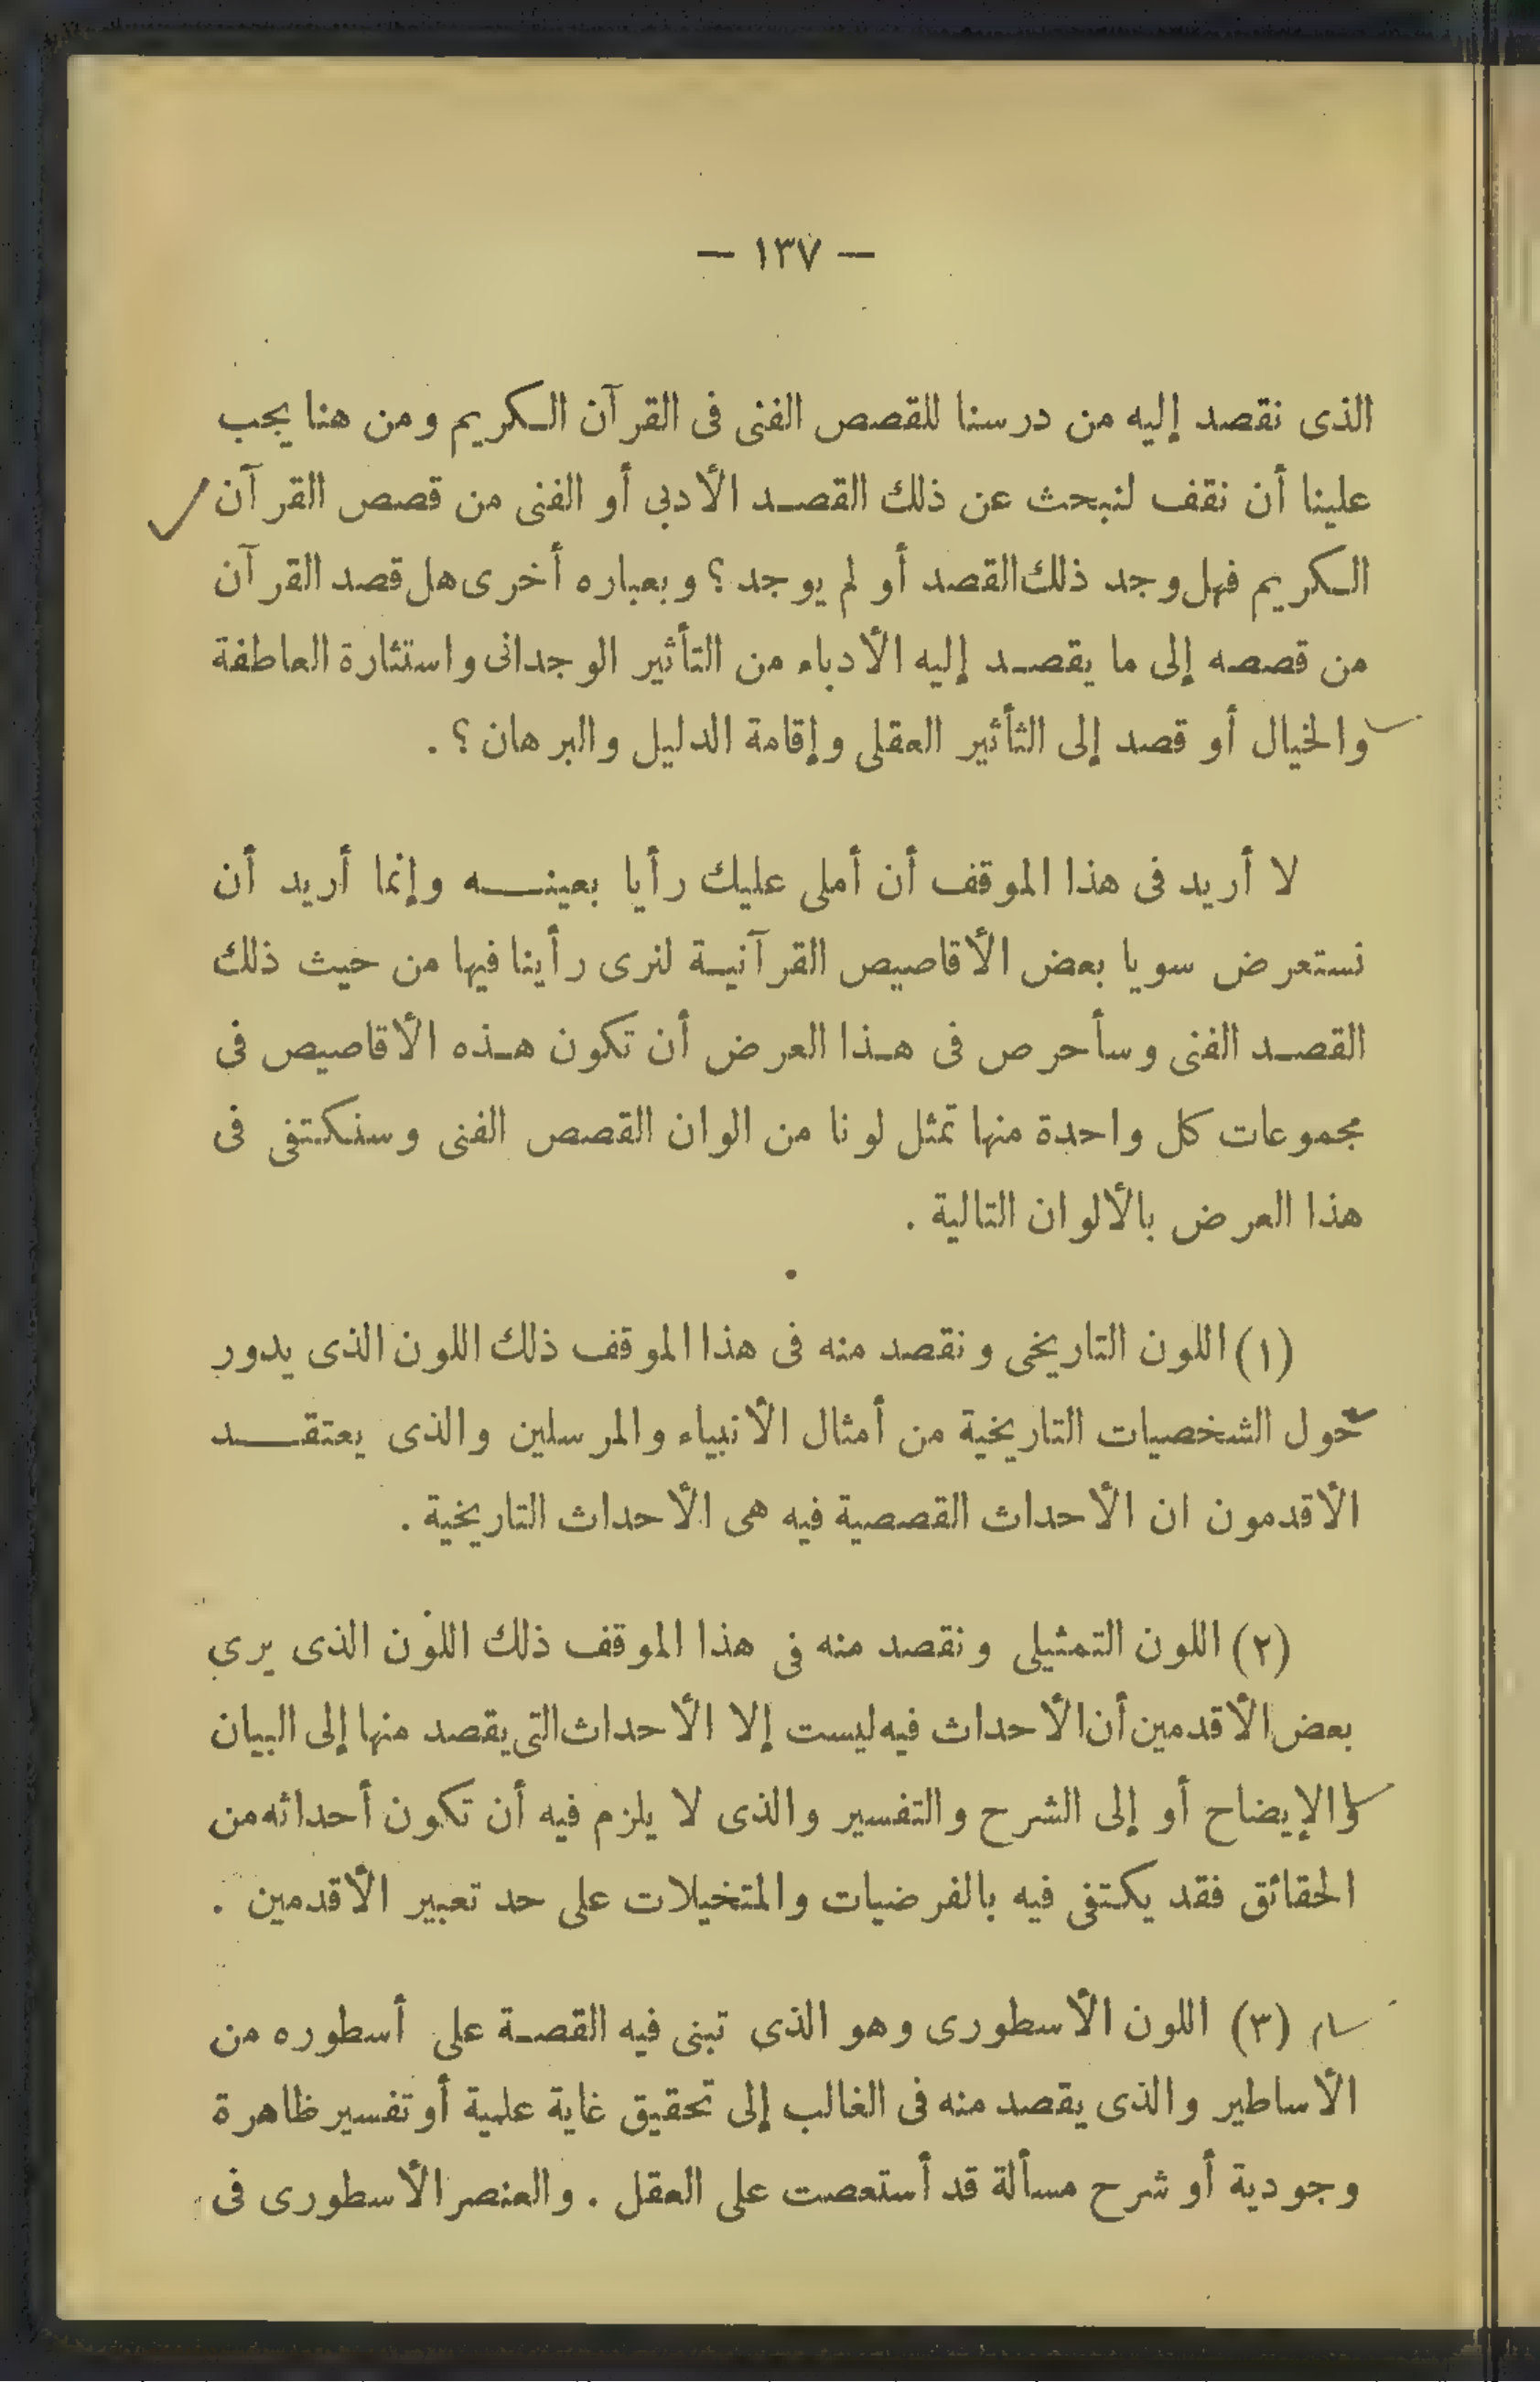 — ١٣٧ —
الذى نقصد إليه من درسنا للقصص الفنى فى القرآن الكريم ومن هنا يجب
علينا أن نقف لنبحث عن ذلك القصد الأدبى أو الفنى من قصص القرآن
الكريم فهل وجد ذلك القصد أو لم يوجد ؟ وبعباره أخرى هل قصد القرآن
من قصصه إلى ما يقصد إليه الأدباء من التأثير الوجدانى واستثارة العاطفة
والخيال أو قصد إلى الثأثير العقلى وإقامة الدليل والبرهان ؟ .
لا أريد فى هذا الموقف أن أملى عليك رأيا بعينه وإنما أريد أن
نستعرض سويا بعض الأقاصيص القرآنية لنرى رأينا فيها من حيث ذلك
القصد الفنى وسأحرص فى هذا العرض أن تكون هذه الأقاصيص فى
مجموعات كل واحدة منها تمثل لونا من الوان القصص الفنى وسنكتفى فى
هذا العرض بالألوان التالية .
(١) اللون التاريخى ونقصد منه فى هذا الموقف ذلك اللون الذى يدور
حول الشخصيات التاريخية من أمثال الأنبياء والمرسلين والذى يعتقد
الأقدمون ان الأحداث القصصية فيه هى الأحداث التاريخية .
(٢) اللون التمثيلى ونقصد منه فى هذا الموقف ذلك اللون الذى يرى
بعض الأقدمين أن الأحداث فيه ليست إلا الأحداث التى يقصد منها إلى البيان
والإيضاح أو إلى الشرح والتفسير والذى لا يلزم فيه أن تكون أحداثه من
الحقائق فقد يكتفى فيه بالفرضيات والمتخيلات على حد تعبير الأقدمين .
(٣) اللون الأسطورى وهو الذى تبنى فيه القصة على أسطوره من
الأساطير والذى يقصد منه فى الغالب إلى تحقيق غاية علمية أو تفسير ظاهرة
وجودية أو شرح مسألة قد أستعصت على العقل . والعنصر الأسطورى فى